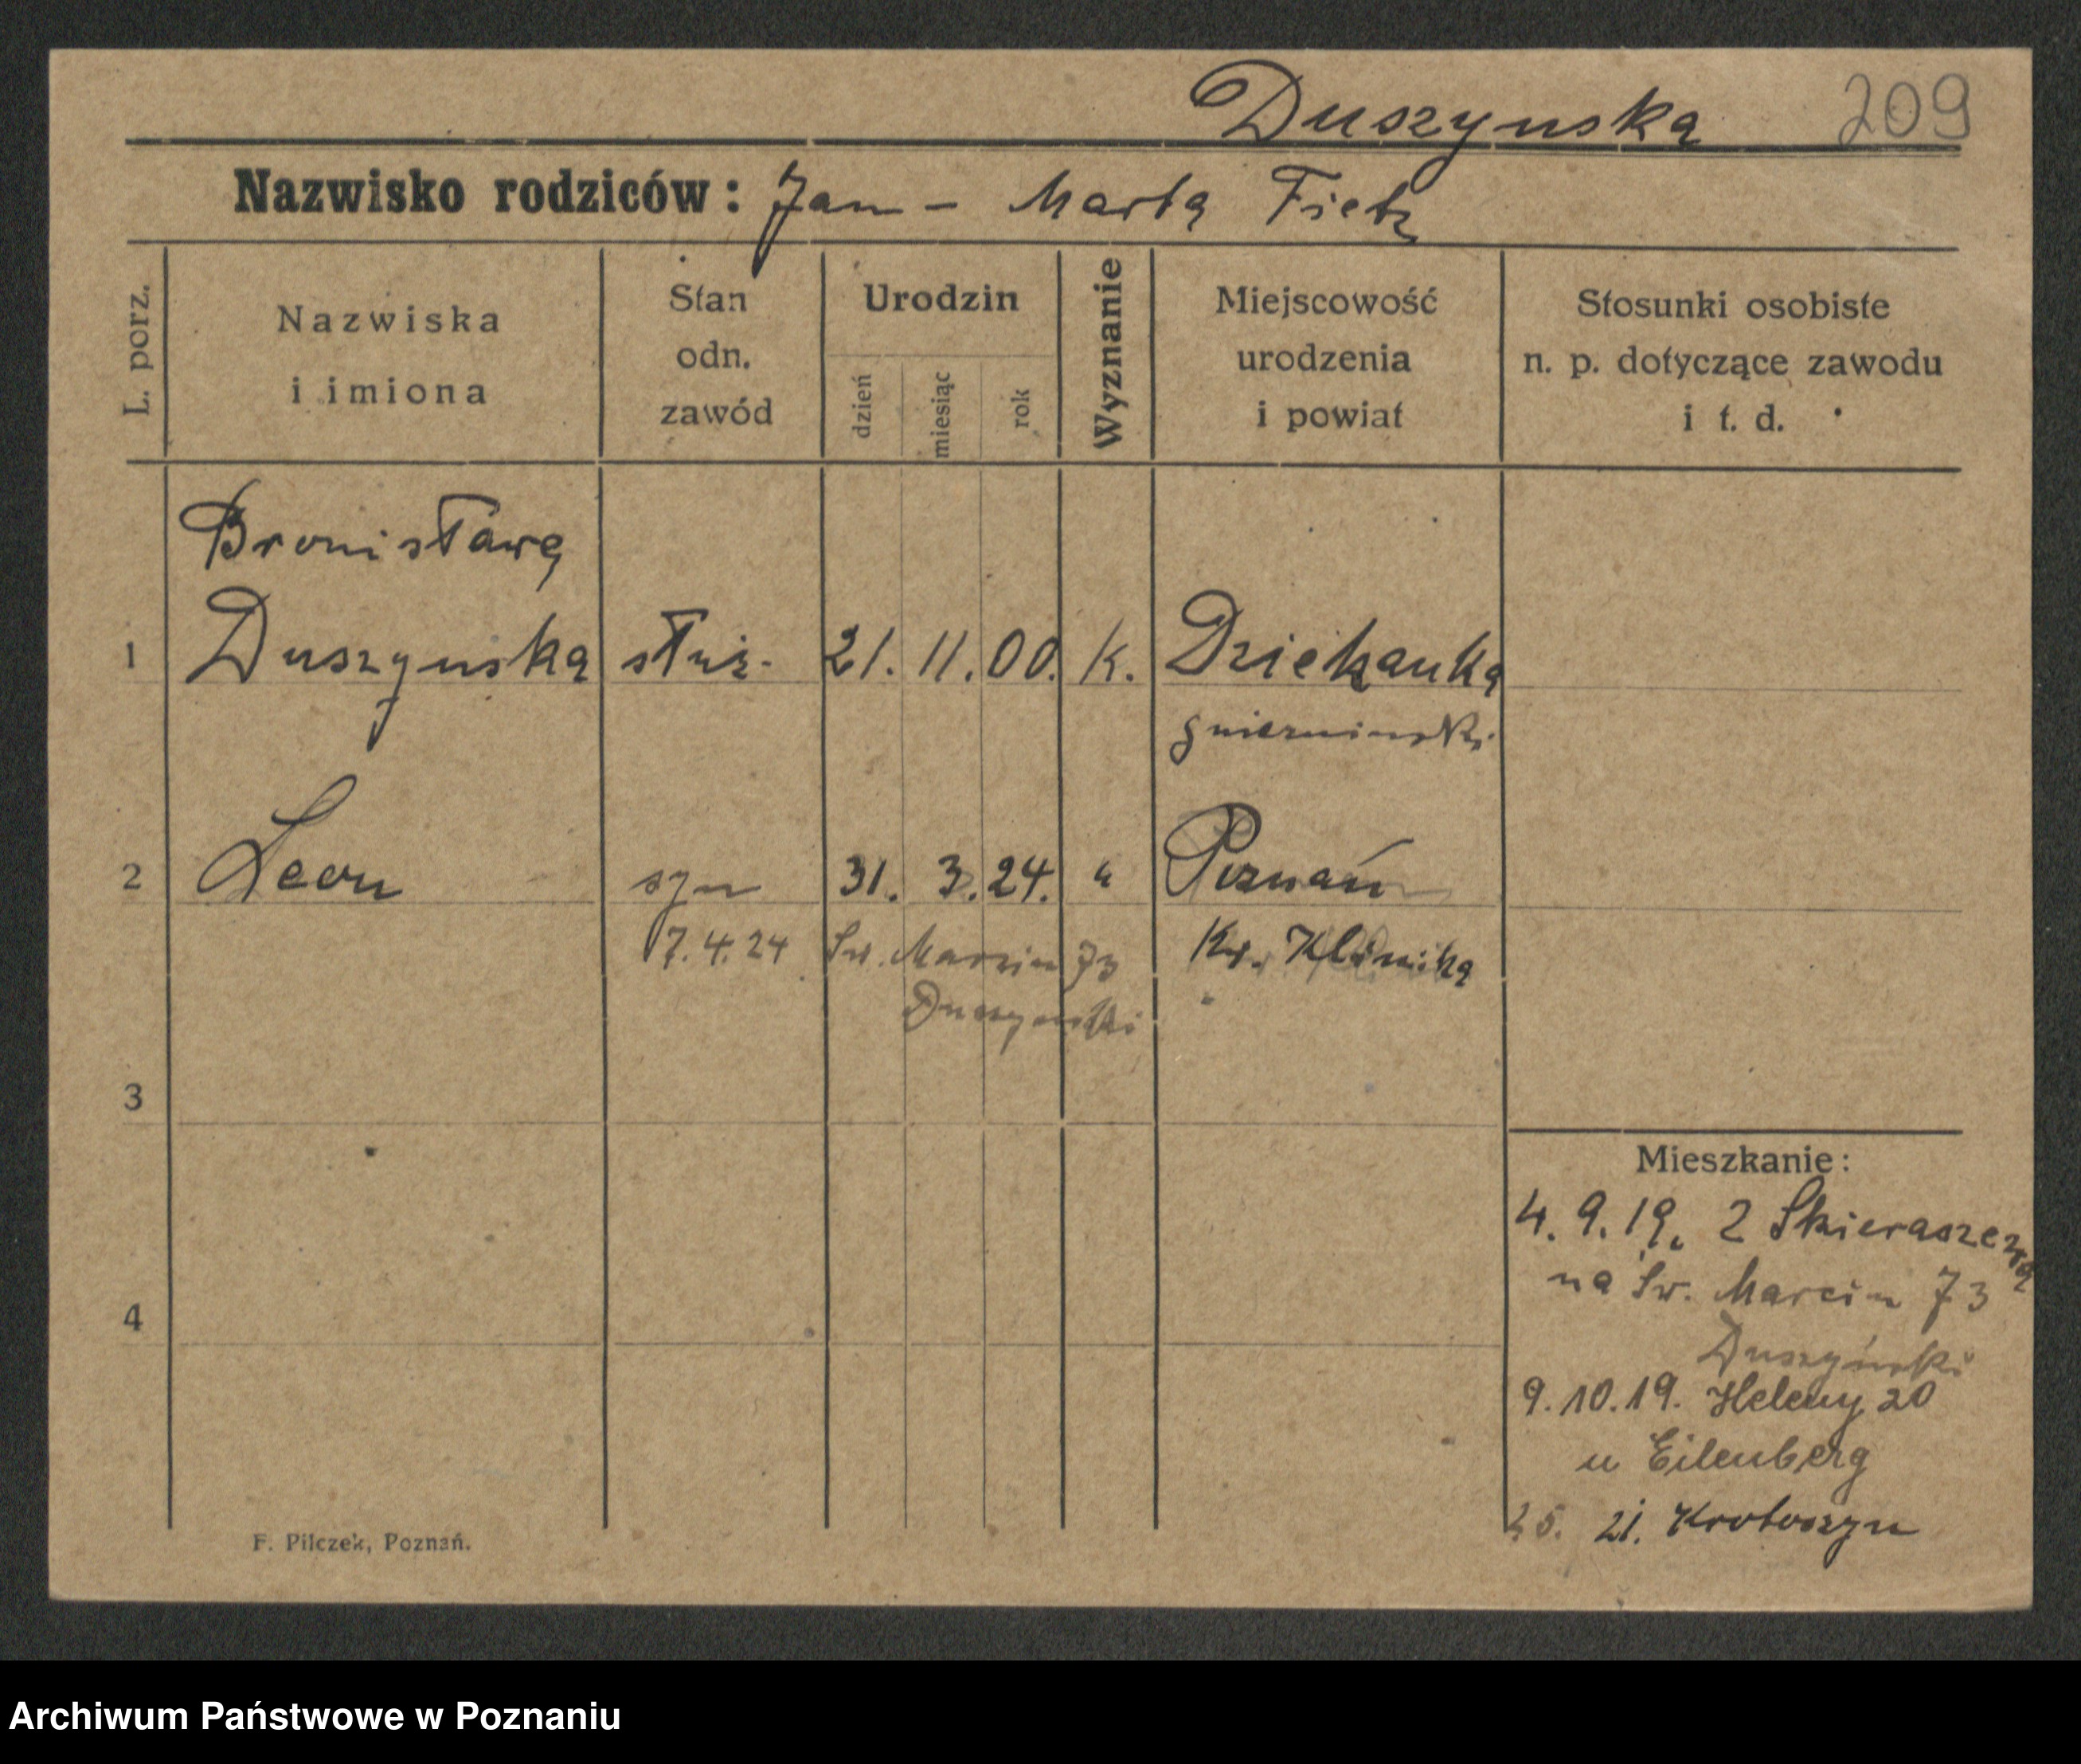 Duszynska 209
Nazwisko rodziców: Jan - Marta Fietz
L. porz.
Nazwiska
i imiona
Stan
odn.
zawód
Urodzin
dzień
miesiąc
rok
Wyznanie
Miejscowość
urodzenia
i powiat
Stosunki osobiste
n. p. dotyczące zawodu
i t. d.
Bronisława
1 Duszynska służ. 21. 11. 00. k. Dziekanka
gniezninski
2 Leon syn 31. 3. 24. " Poznań
7.4.24 Św. Marcin 73 Kr. Klinika
Duszynski
3
4
Mieszkanie:
4. 9. 19. z Skieraszewa
na Św. Marcin 73
Duszyński
9.10.19. Heleny 20
u Eilenberg
5. 21. Krotoszyn
F. Pilczek, Poznań.
Archiwum Państwowe w Poznaniu